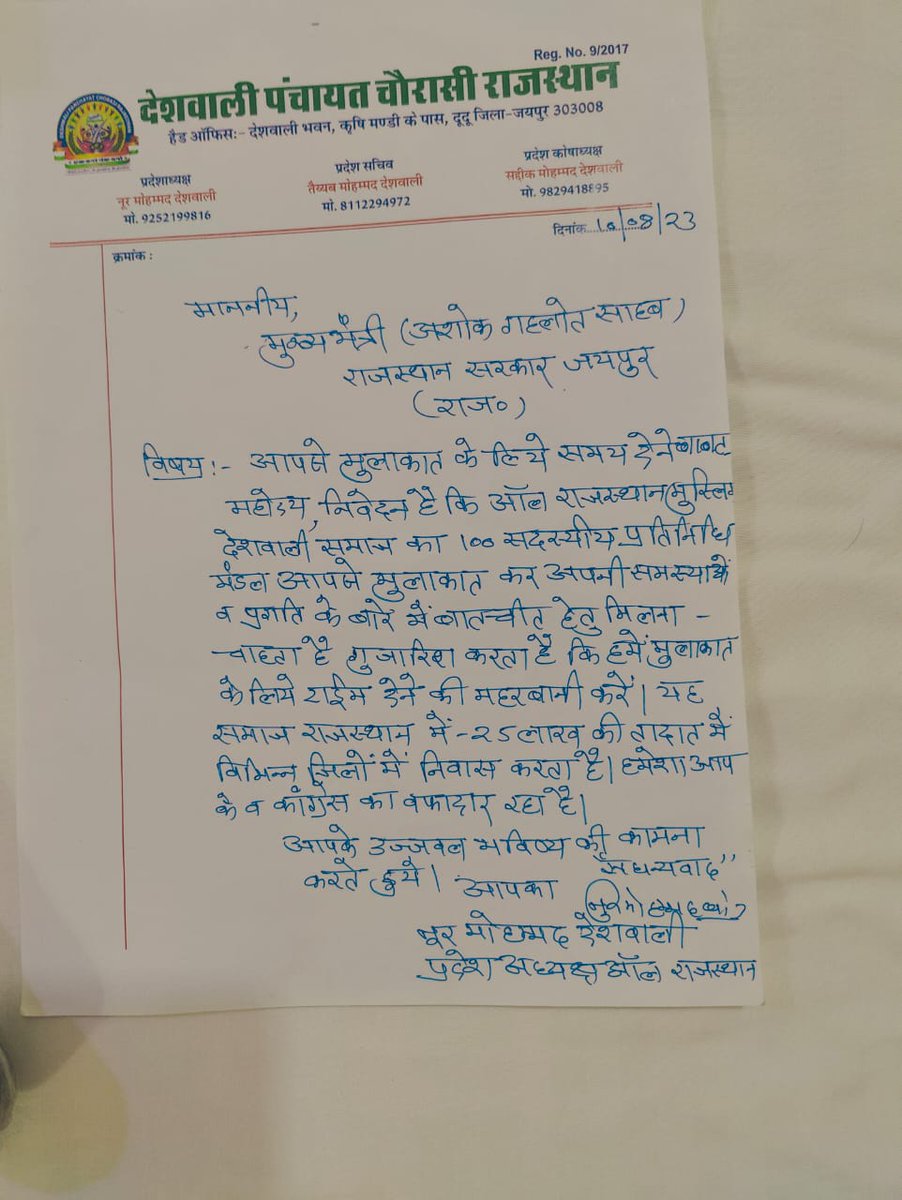 Reg. No. 9/2017
देशवाली पंचायत चौरासी राजस्थान
हैड ऑफिसः- देशवाली भवन, कृषि मण्डी के पास, दूदू जिला-जयपुर 303008
प्रदेशाध्यक्ष
नूर मोहम्मद देशवाली
मो. 9252199816
प्रदेश सचिव
तैय्यब मोहम्मद देशवाली
मो. 8112294972
प्रदेश कोषाध्यक्ष
सद्दीक मोहम्मद देशवाली
मो. 9829418895
दिनांक 10/08/23
क्रमांक :
माननीय,
मुख्यमंत्री (अशोक गहलोत साहब)
राजस्थान सरकार जयपुर
(राज०)
विषय:- आपसे मुलाकात के लिये समय देने बाबत
महोदय, निवेदन है कि ऑल राजस्थान (मुस्लिम
देशवाली) समाज का 100 सदस्यीय प्रतिनिधि
मंडल आपसे मुलाकात कर अपनी समस्याओं
व प्रगति के बारे में बातचीत हेतु मिलना -
चाहता है गुजारिश करता है कि हमें मुलाकात
के लिये टाईम देने की महरबानी करें। यह
समाज राजस्थान में - 25 लाख की तादात में
विभिन्न जिलों में निवास करता है। हमेशा आप
के व काँग्रेस का वफादार रहा है।
आपके उज्जवल भविष्य की कामना
करते हुये। "सधन्यवाद"
आपका
नूर मोहम्मद देशवाली
प्रदेश अध्यक्ष ऑल राजस्थान